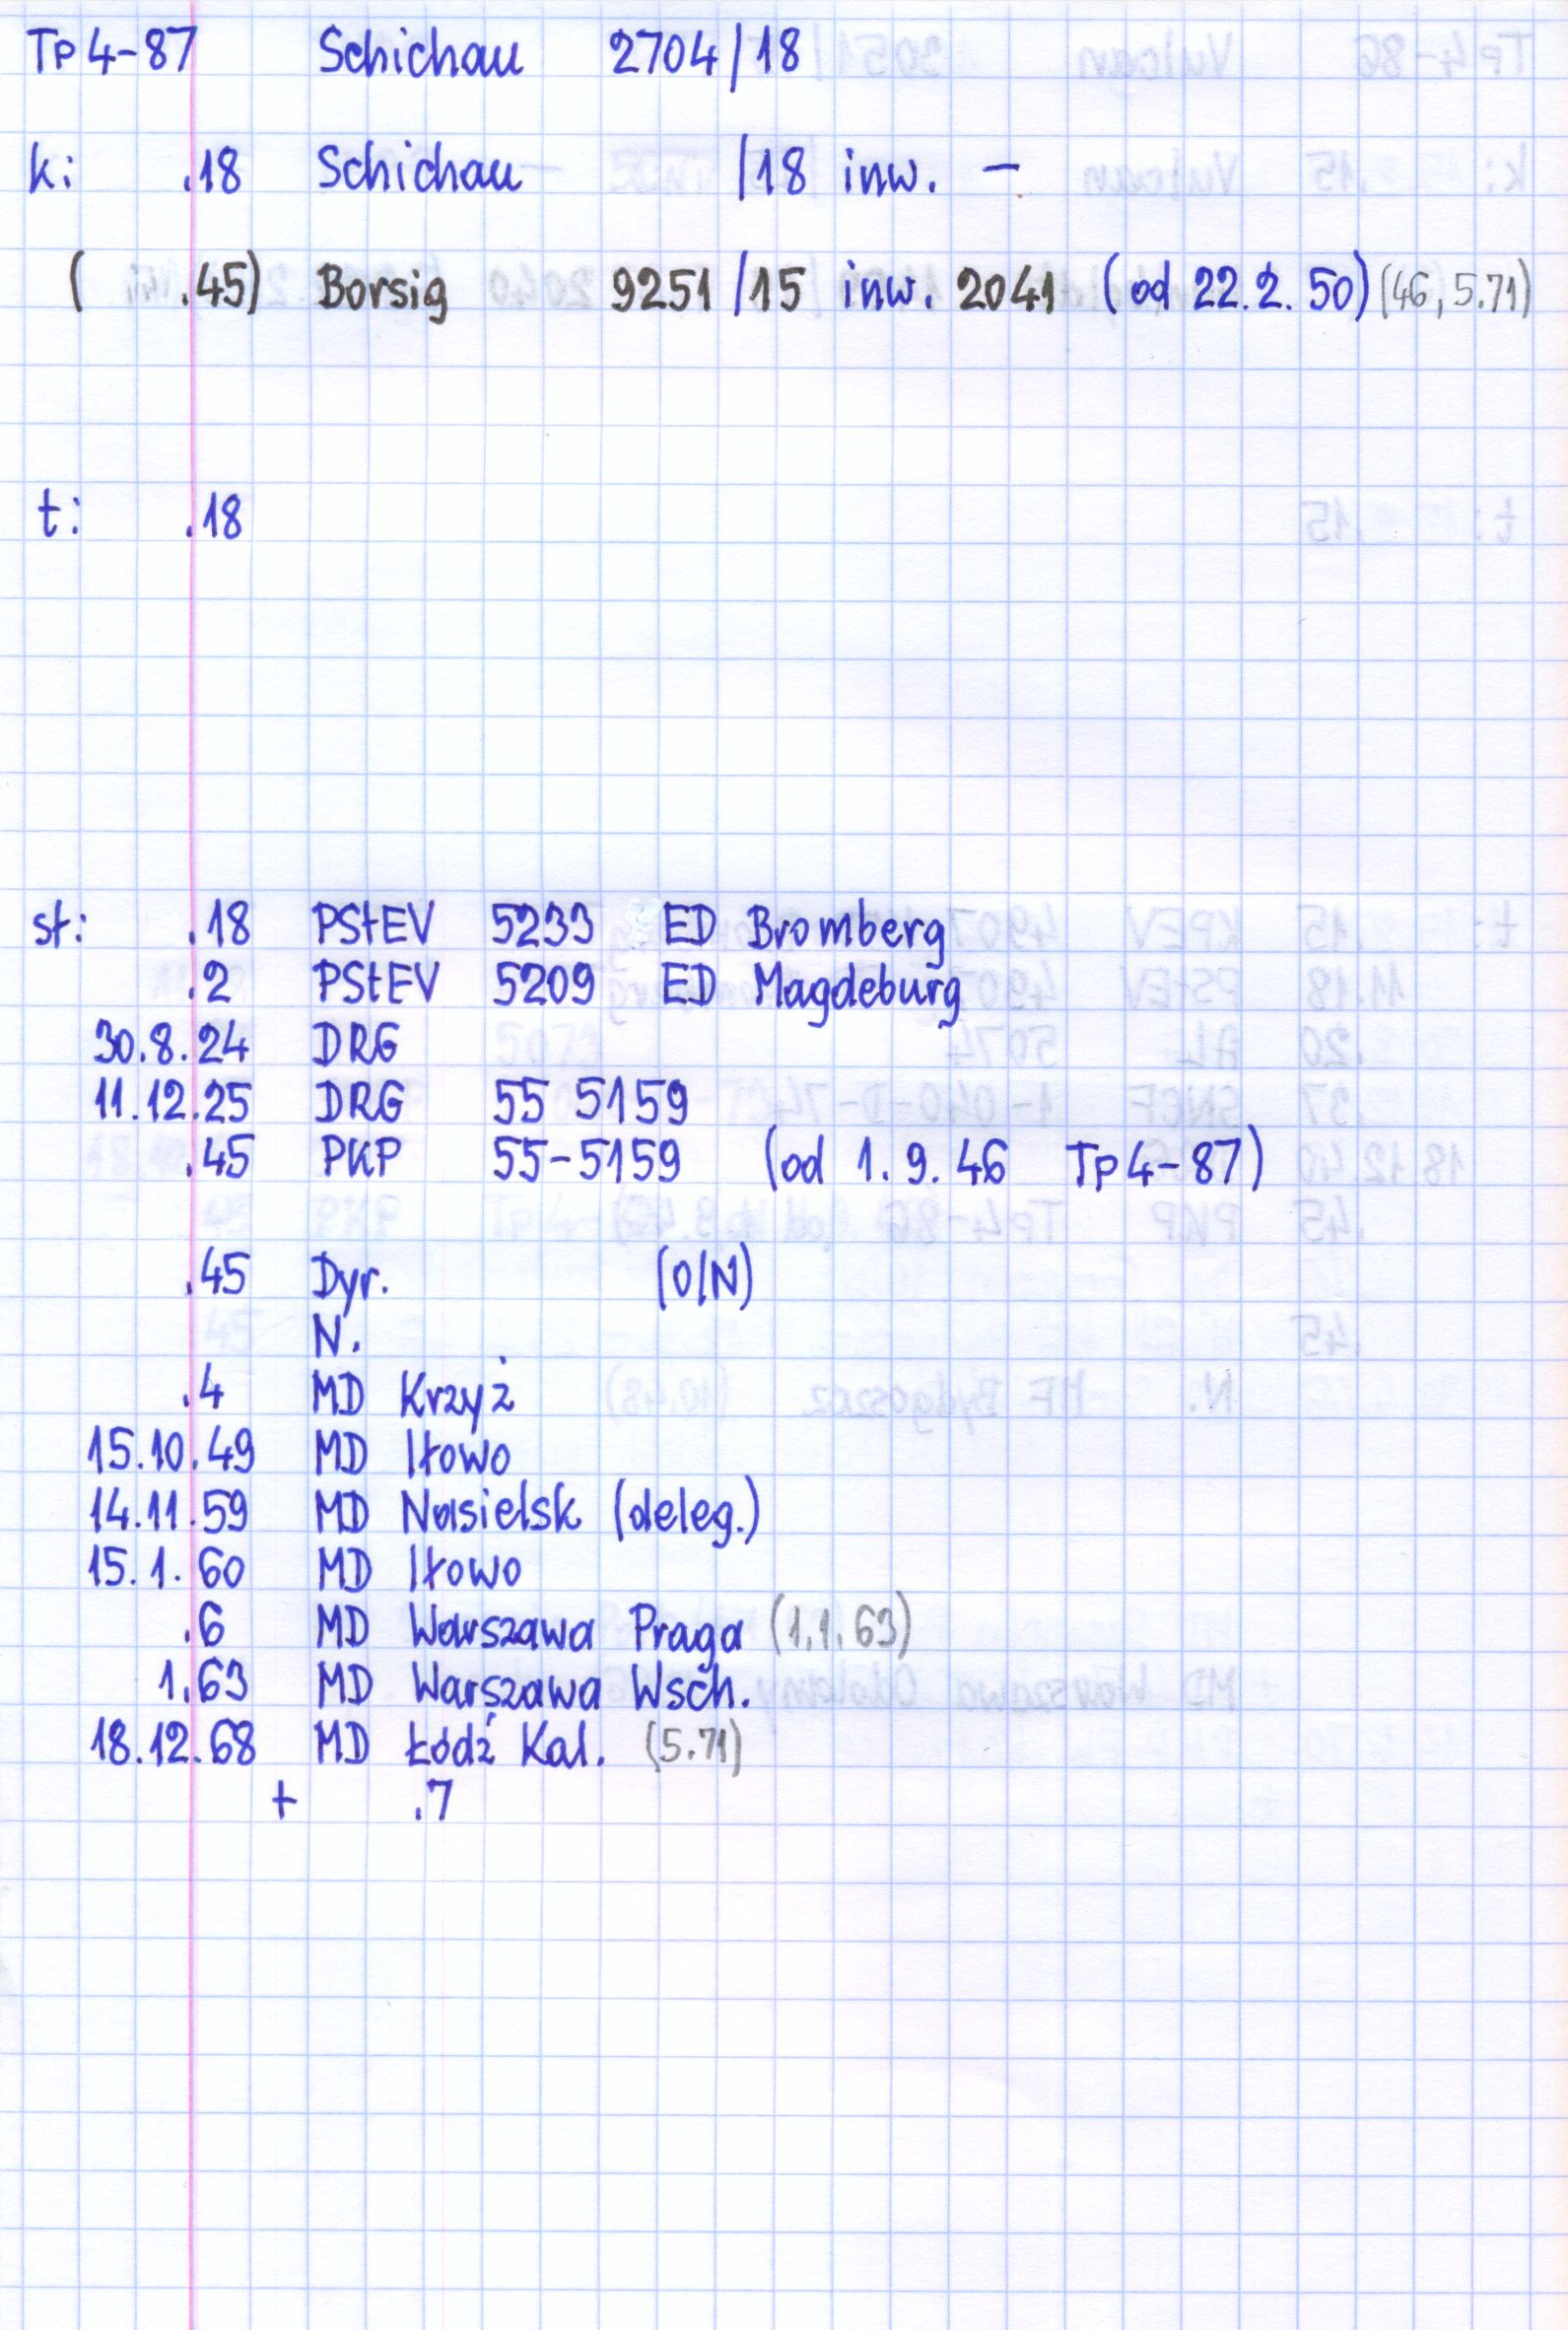 Tp4-87 Schichau 2704/18
k: .18 Schichau /18 inw. -
( .45) Borsig 9251/15 inw. 2041 (od 22.2.50) (46, 5.71)
t: .18
st: .18 PStEV 5233 ED Bromberg
.2 PStEV 5209 ED Magdeburg
30.8.24 DRG
11.12.25 DRG 55 5159
.45 PKP 55-5159 (od 1.9.46 Tp4-87)
.45 Dyr. (O/N)
N.
.4 MD Krzyż
15.10.49 MD Iłowo
14.11.59 MD Nasielsk (deleg.)
15.1.60 MD Iłowo
.6 MD Warszawa Praga (1.1.63)
1.63 MD Warszawa Wsch.
18.12.68 MD Łódź Kal. (5.71)
+ .7